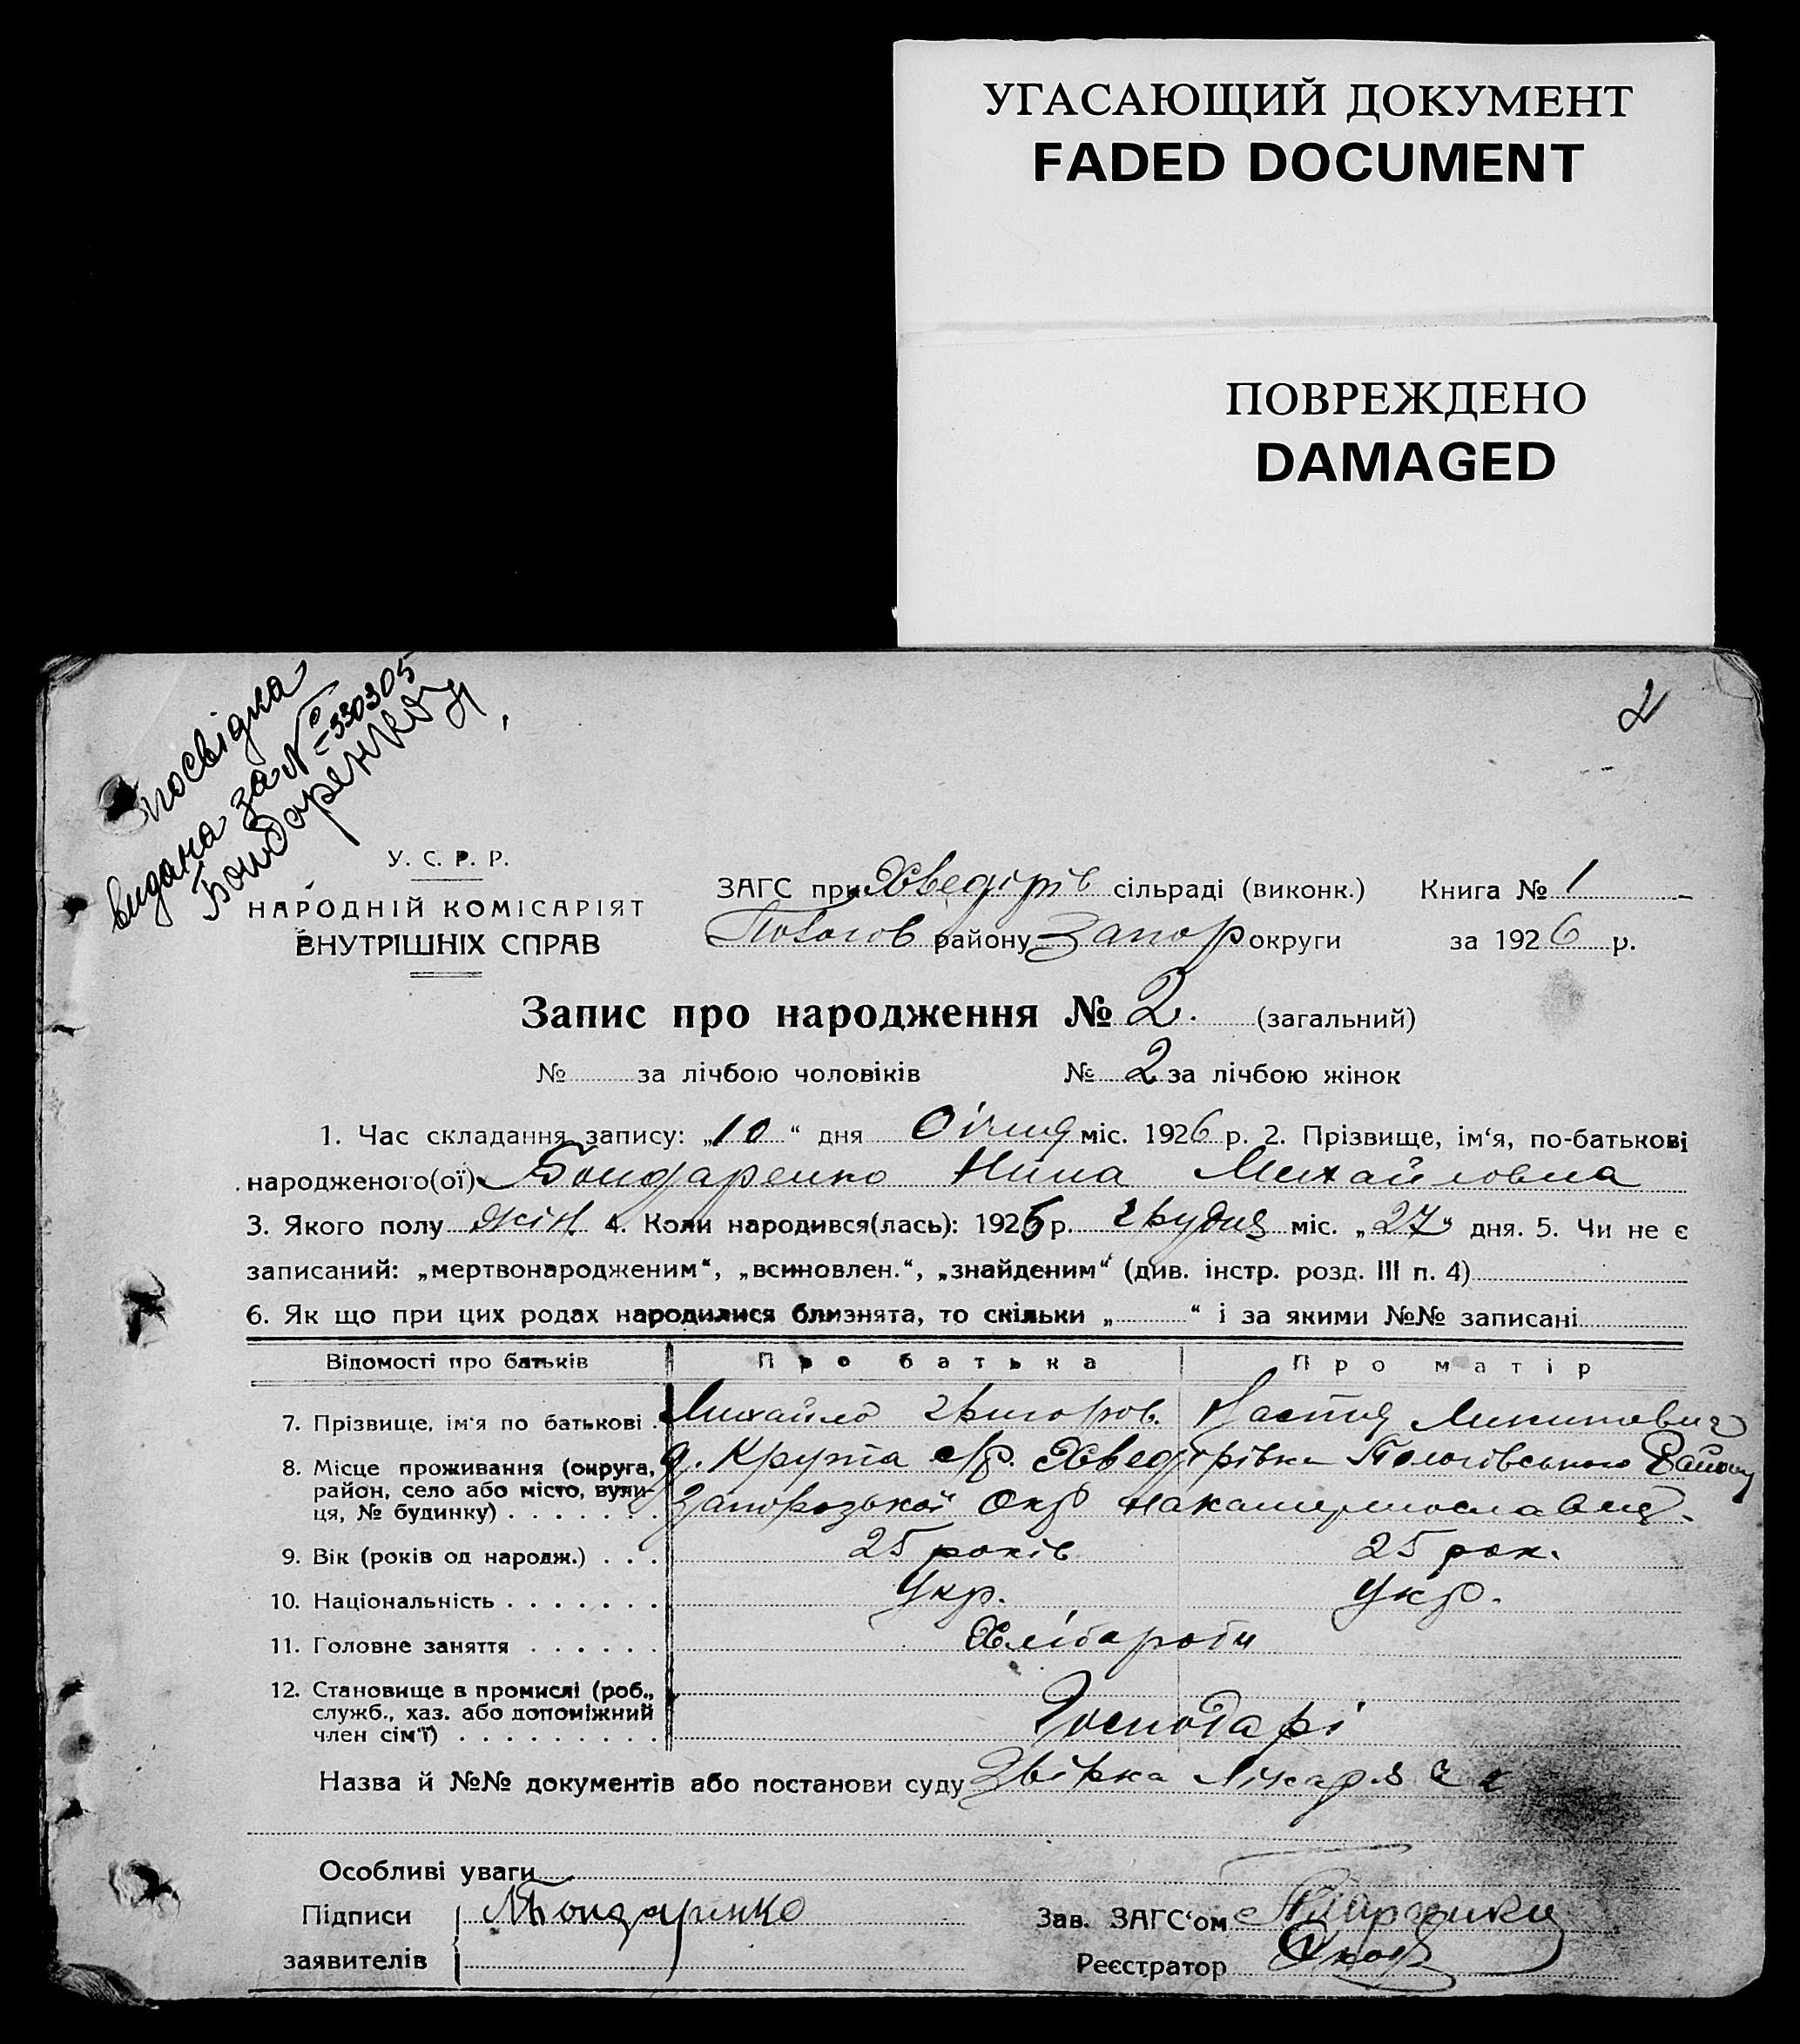 УГАСАЮЩИЙ ДОКУМЕНТ
FADED DOCUMENT
ПОВРЕЖДЕНО
DAMAGED
2
посвідка
видана за № 330305
Бондаренко
У. С. Р. Р.
НАРОДНІЙ КОМІСАРІЯТ
ВНУТРІШНІХ СПРАВ
ЗАГС при Хведірів сільраді (виконк.) Книга № 1
Пологов району Запор округи за 1926 р.
Запис про народження № 2. (загальний)
№ за лічбою чоловіків № 2 за лічбою жінок
1. Час складання запису: „10“ дня Січня міс. 1926 р. 2. Прізвище, ім‘я, по-батькові
народженого(ої) Бондаренко Нина Михайловна
3. Якого полу жін 4. Коли народився(лась): 1925 р. грудня міс. „27“ дня. 5. Чи не є
записаний: „мертвонародженим“, „всиновлен.“, „знайденим“ (див. інстр. розд. III п. 4)
6. Як що при цих родах народилися близнята, то скільки „ “ і за якими №№ записані
Відомості про батьків Про батька Про матір
7. Прізвище, ім‘я по батькові Михайло Григоров. Настя Микитовна
8. Місце проживання (округа, Крута с/р. Хведірівка Пологівського Району
район, село або місто, вули-
ця, № будинку) Запорозької Окр
9. Вік (років од народж.) 25 років 25 рок.
10. Національність Укр. Укр.
11. Головне заняття Хлібароби
12. Становище в промислі (роб.,
служб., хаз. або допоміжний
член сім‘ї) Господарі
Назва й №№ документів або постанови суду Лікаря
Особливі уваги
Підписи Бондаренко Зав. ЗАГС‘ом
заявителів Реєстратор